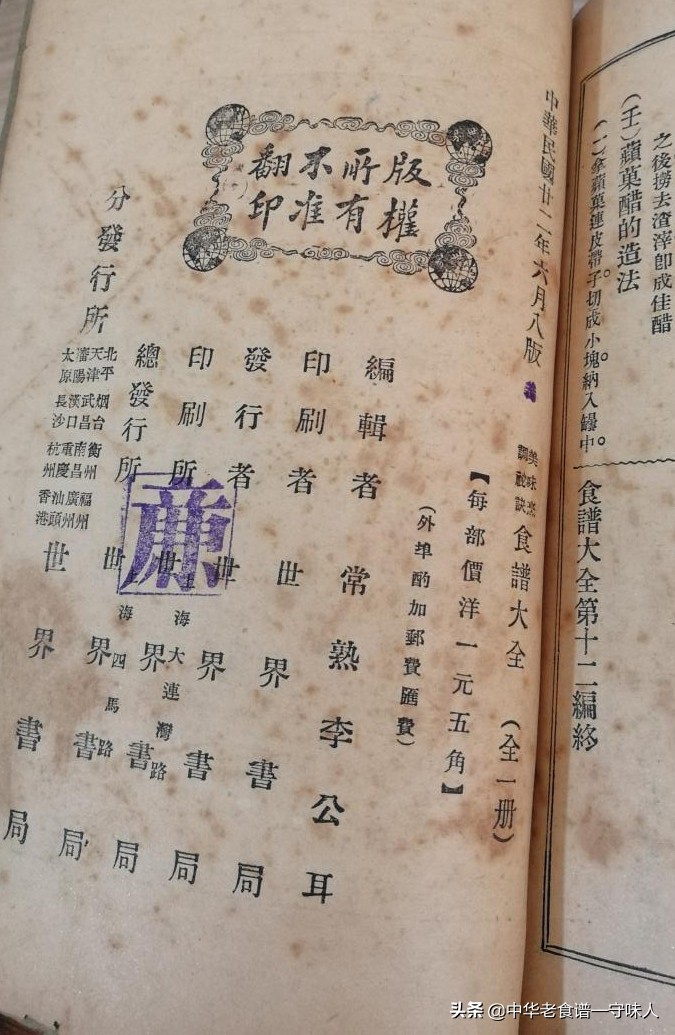 之後撈去渣滓卽成佳醋
(壬)蘋菓醋的造法
(一)拿蘋菓連皮帶子。切成小塊。納入罎中。
食譜大全第十二編終
中華民國廿二年六月八版
美味烹調秘訣 食譜大全 (全一册)
【每部價洋一元五角】
(外埠酌加郵費匯費)
版權
所有
不准
翻印
編輯者 常熟李公耳
印刷者 世界書局
發行者 世界書局
印刷所 上海大連灣路 世界書局
總發行所 上海四馬路 世界書局
分發行所 北平 天津 瀋陽 太原 烟台 武昌 漢口 長沙 衡州 南昌 重慶 杭州 福州 廣州 汕頭 香港 世界書局
头条 @中华老食谱一守味人